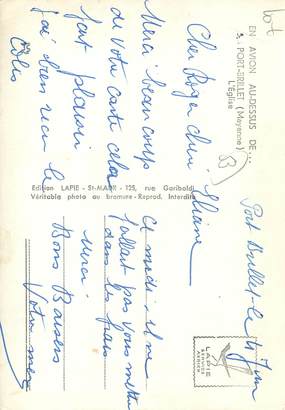 EN AVION AU-DESSUS DE...
3. PORT-BRILLET (Mayenne)
L'Église
Port Brillet le 4 Juin
Cher Roger chère Eliane
Merci beaucoup
de votre carte cela
fait plaisir
j'ai bien reçu le
colis
ce midi il ne
fallait pas vous mettre
dans les frais
merci
Bons Baisers
Votre mère
Edition LAPIE - St-MAUR - 125, rue Garibaldi
Véritable photo au bromure - Reprod. Interdite
LAPIE
SERVICE
AERIEN
53